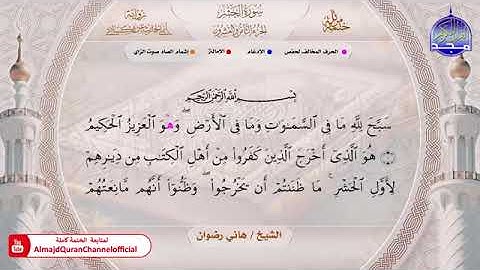 سُورَةُ الحَشْر
الحرف المخالف لحفص
الادغام
الامالة
إشمام الصاد صوت الزاي
بِسْمِ اللَّهِ الرَّحْمَٰنِ الرَّحِيمِ
سَبَّحَ لِلَّهِ مَا فِي السَّمَٰوَٰتِ وَمَا فِي الْأَرْضِ وَهْوَ الْعَزِيزُ الْحَكِيمُ
١ هُوَ الَّذِي أَخْرَجَ الَّذِينَ كَفَرُوا مِنْ أَهْلِ الْكِتَٰبِ مِن دِيَٰرِهِمْ
لِأَوَّلِ الْحَشْرِ مَا ظَنَنتُمْ أَن يَخْرُجُوا وَظَنُّوا أَنَّهُم مَّانِعَتُهُمْ
الشيخ / هاني رضوان
لمتابعة الختمة كاملة
AlmajdQuranChannelofficial